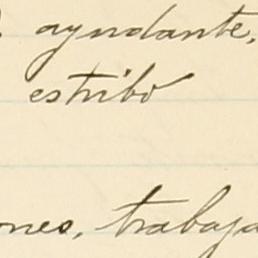 ayudante,
estribo
ones, trabaja